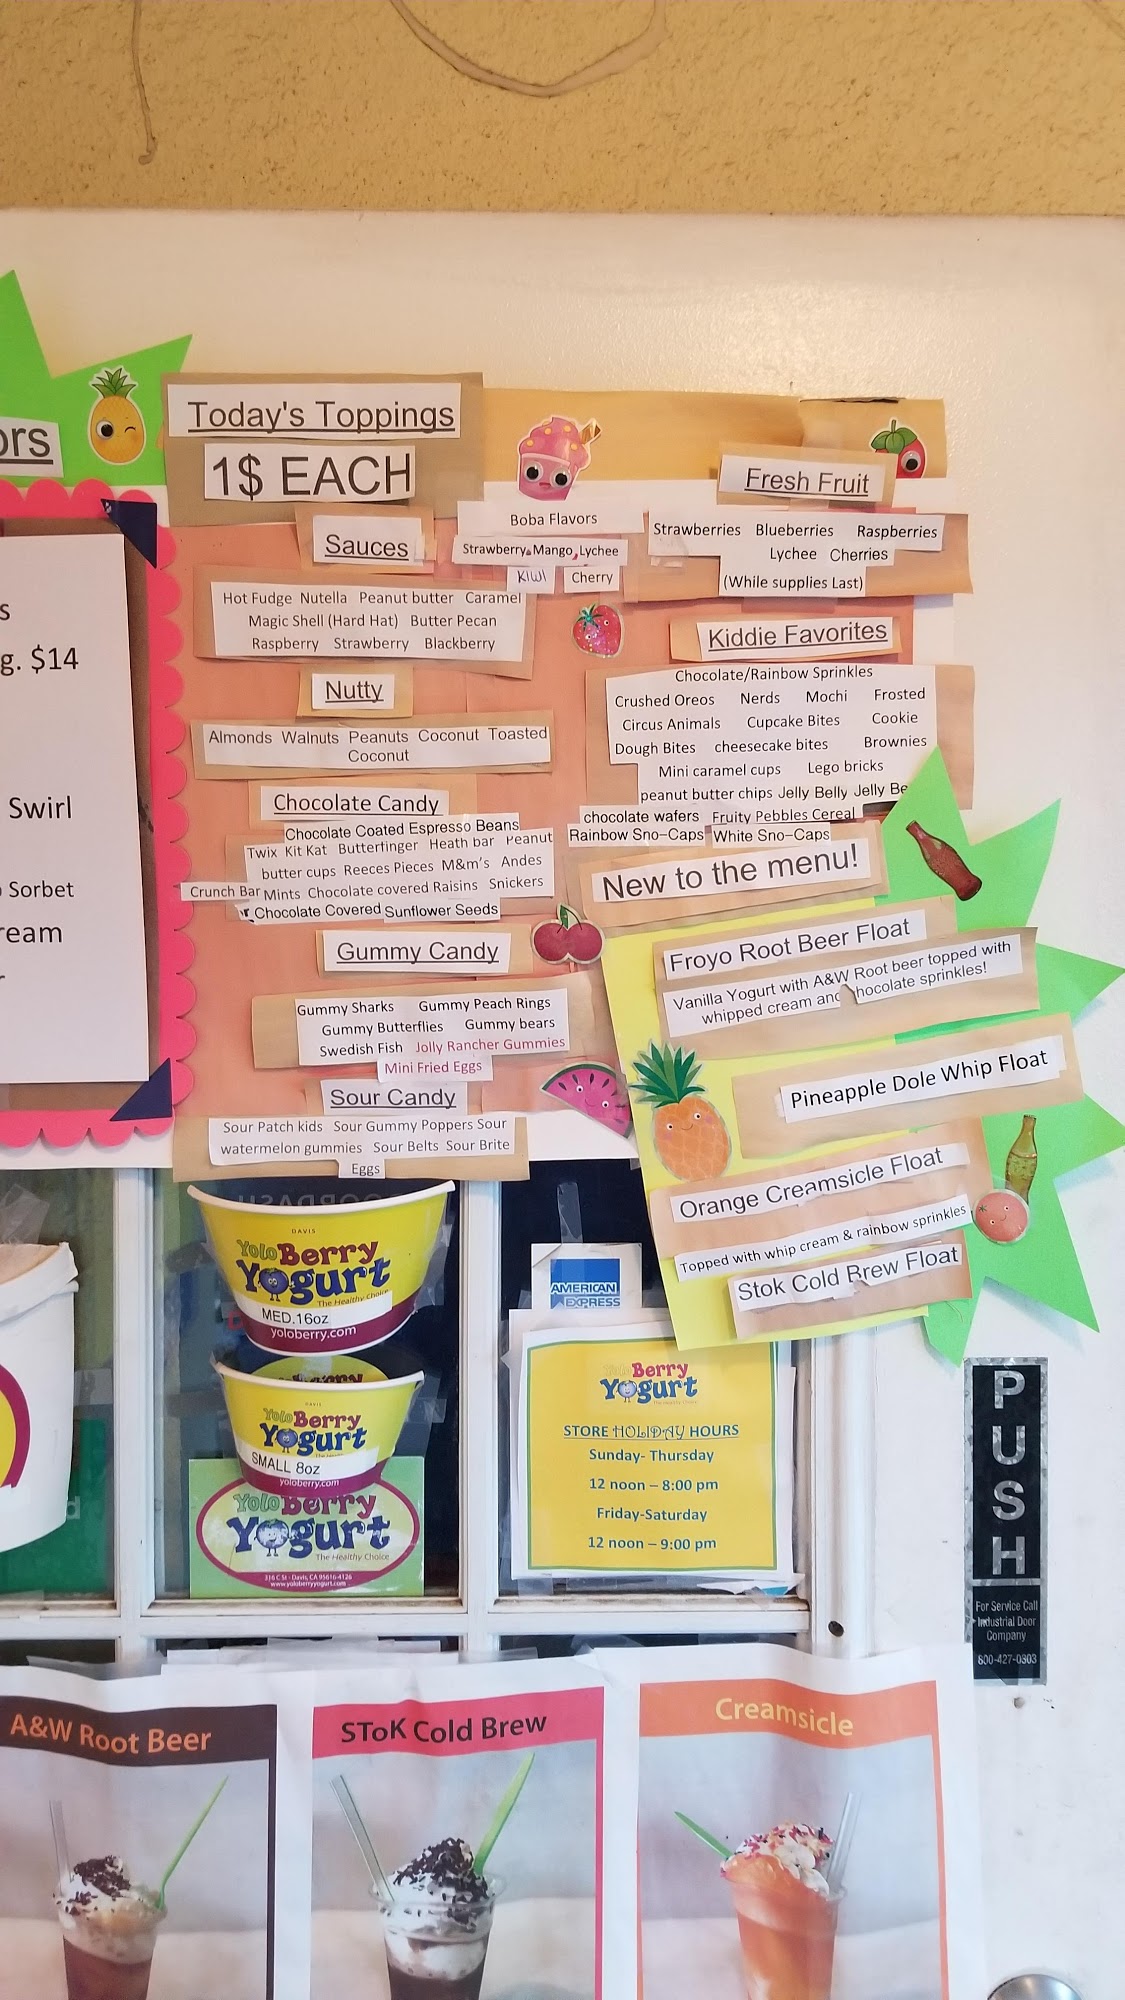 ors
s
g. $14
Swirl
Sorbet
ream
r
Today's Toppings
1$ EACH
Sauces
Hot Fudge Nutella Peanut butter Caramel
Magic Shell (Hard Hat) Butter Pecan
Raspberry Strawberry Blackberry
Nutty
Almonds Walnuts Peanuts Coconut Toasted
Coconut
Chocolate Candy
Chocolate Coated Espresso Beans
Twix Kit Kat Butterfinger Heath bar Peanut
butter cups Reeces Pieces M&m's Andes
Crunch Bar Mints Chocolate covered Raisins Snickers
Chocolate Covered Sunflower Seeds
Gummy Candy
Gummy Sharks Gummy Peach Rings
Gummy Butterflies Gummy bears
Swedish Fish Jolly Rancher Gummies
Mini Fried Eggs
Sour Candy
Sour Patch kids Sour Gummy Poppers Sour
watermelon gummies Sour Belts Sour Brite
Eggs
Boba Flavors
Strawberry Mango, Lychee
KIWI Cherry
Fresh Fruit
Strawberries Blueberries Raspberries
Lychee Cherries
(While supplies Last)
Kiddie Favorites
Chocolate/Rainbow Sprinkles
Crushed Oreos Nerds Mochi Frosted
Circus Animals Cupcake Bites Cookie
Dough Bites cheesecake bites Brownies
Mini caramel cups Lego bricks
peanut butter chips Jelly Belly Jelly Be
chocolate wafers Fruity Pebbles Cereal
Rainbow Sno-Caps White Sno-Caps
New to the menu!
Froyo Root Beer Float
Vanilla Yogurt with A&W Root beer topped with
whipped cream and hocolate sprinkles!
Pineapple Dole Whip Float
Orange Creamsicle Float
Topped with whip cream & rainbow sprinkles
Stok Cold Brew Float
DAVIS
Yolo Berry
Yogurt
The Healthy Choice
MED.16oz
yoloberry.com
DAVIS
Yolo Berry
Yogurt
SMALL 8oz
yoloberry.com
Yolo Berry
Yogurt
The Healthy Choice
316 C St - Davis, CA 95616-4126
www.yoloberryyogurt.com
AMERICAN
EXPRESS
Yolo Berry
Yogurt
The Healthy Choice
STORE HOLIDAY HOURS
Sunday- Thursday
12 noon – 8:00 pm
Friday-Saturday
12 noon – 9:00 pm
PUSH
For Service Call
Industrial Door
Company
800-427-0303
A&W Root Beer
SToK Cold Brew
Creamsicle